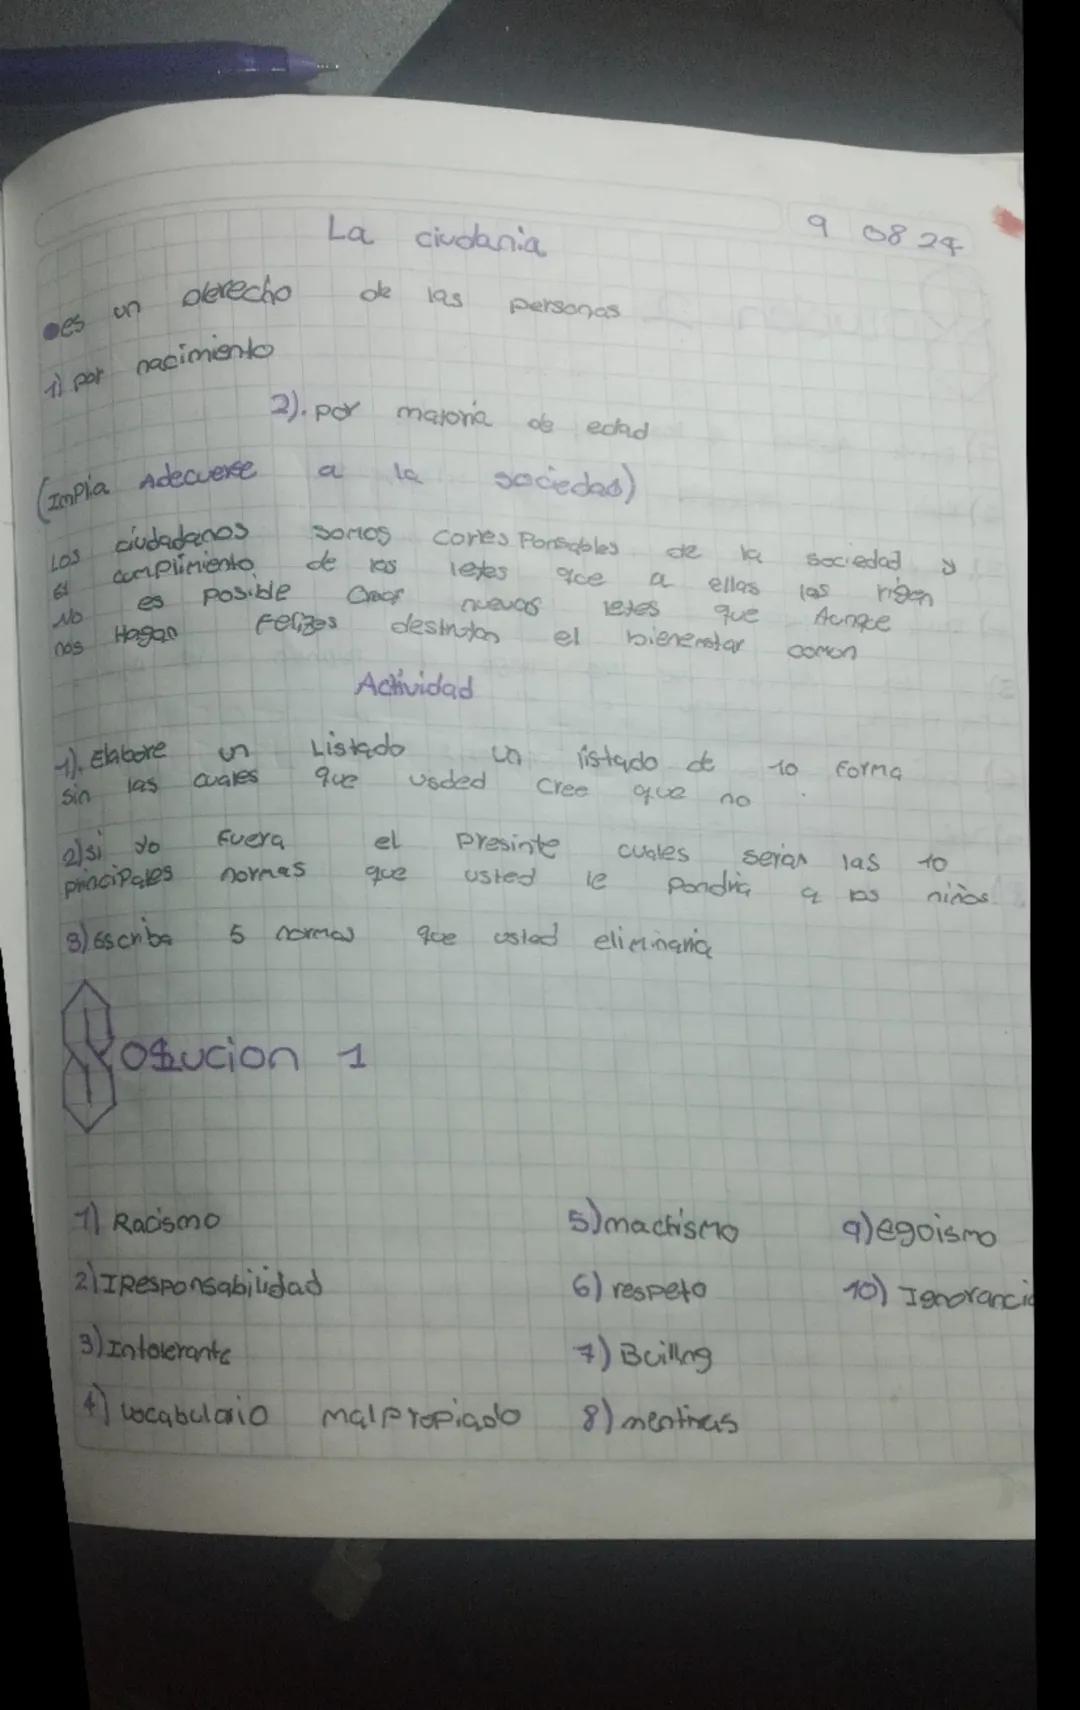 La ciudania
9 08 24
es un derecho de las personas
1) por nacimiento
2). por maioria de edad
(Implia Adecuerse a la sociedad)
Los ciudadanos somos corresponsables de la sociedad y
el cumplimiento de los leyes que a ellas las rigen
No es posible crear nuevas leyes que Aunque
nos Hagan Felizes destruyan el bienenstar comun
Actividad
1). Elabore un Listado un listado de 10 forma
sin las cuales que usded cree que no
2) si yo Fuera el Presinte cuales serian las 10
principales normas que usted le Pondria a los niños
3) Escriba 5 normas que usted eliminaria
Solucion 1
1) Racismo
2) IResponsabilidad
3) Intolerante
4) vocabulario malpropiado
5) machismo
6) respeto
7) Builling
8) mentiras
9) egoismo
10) Ignorancia